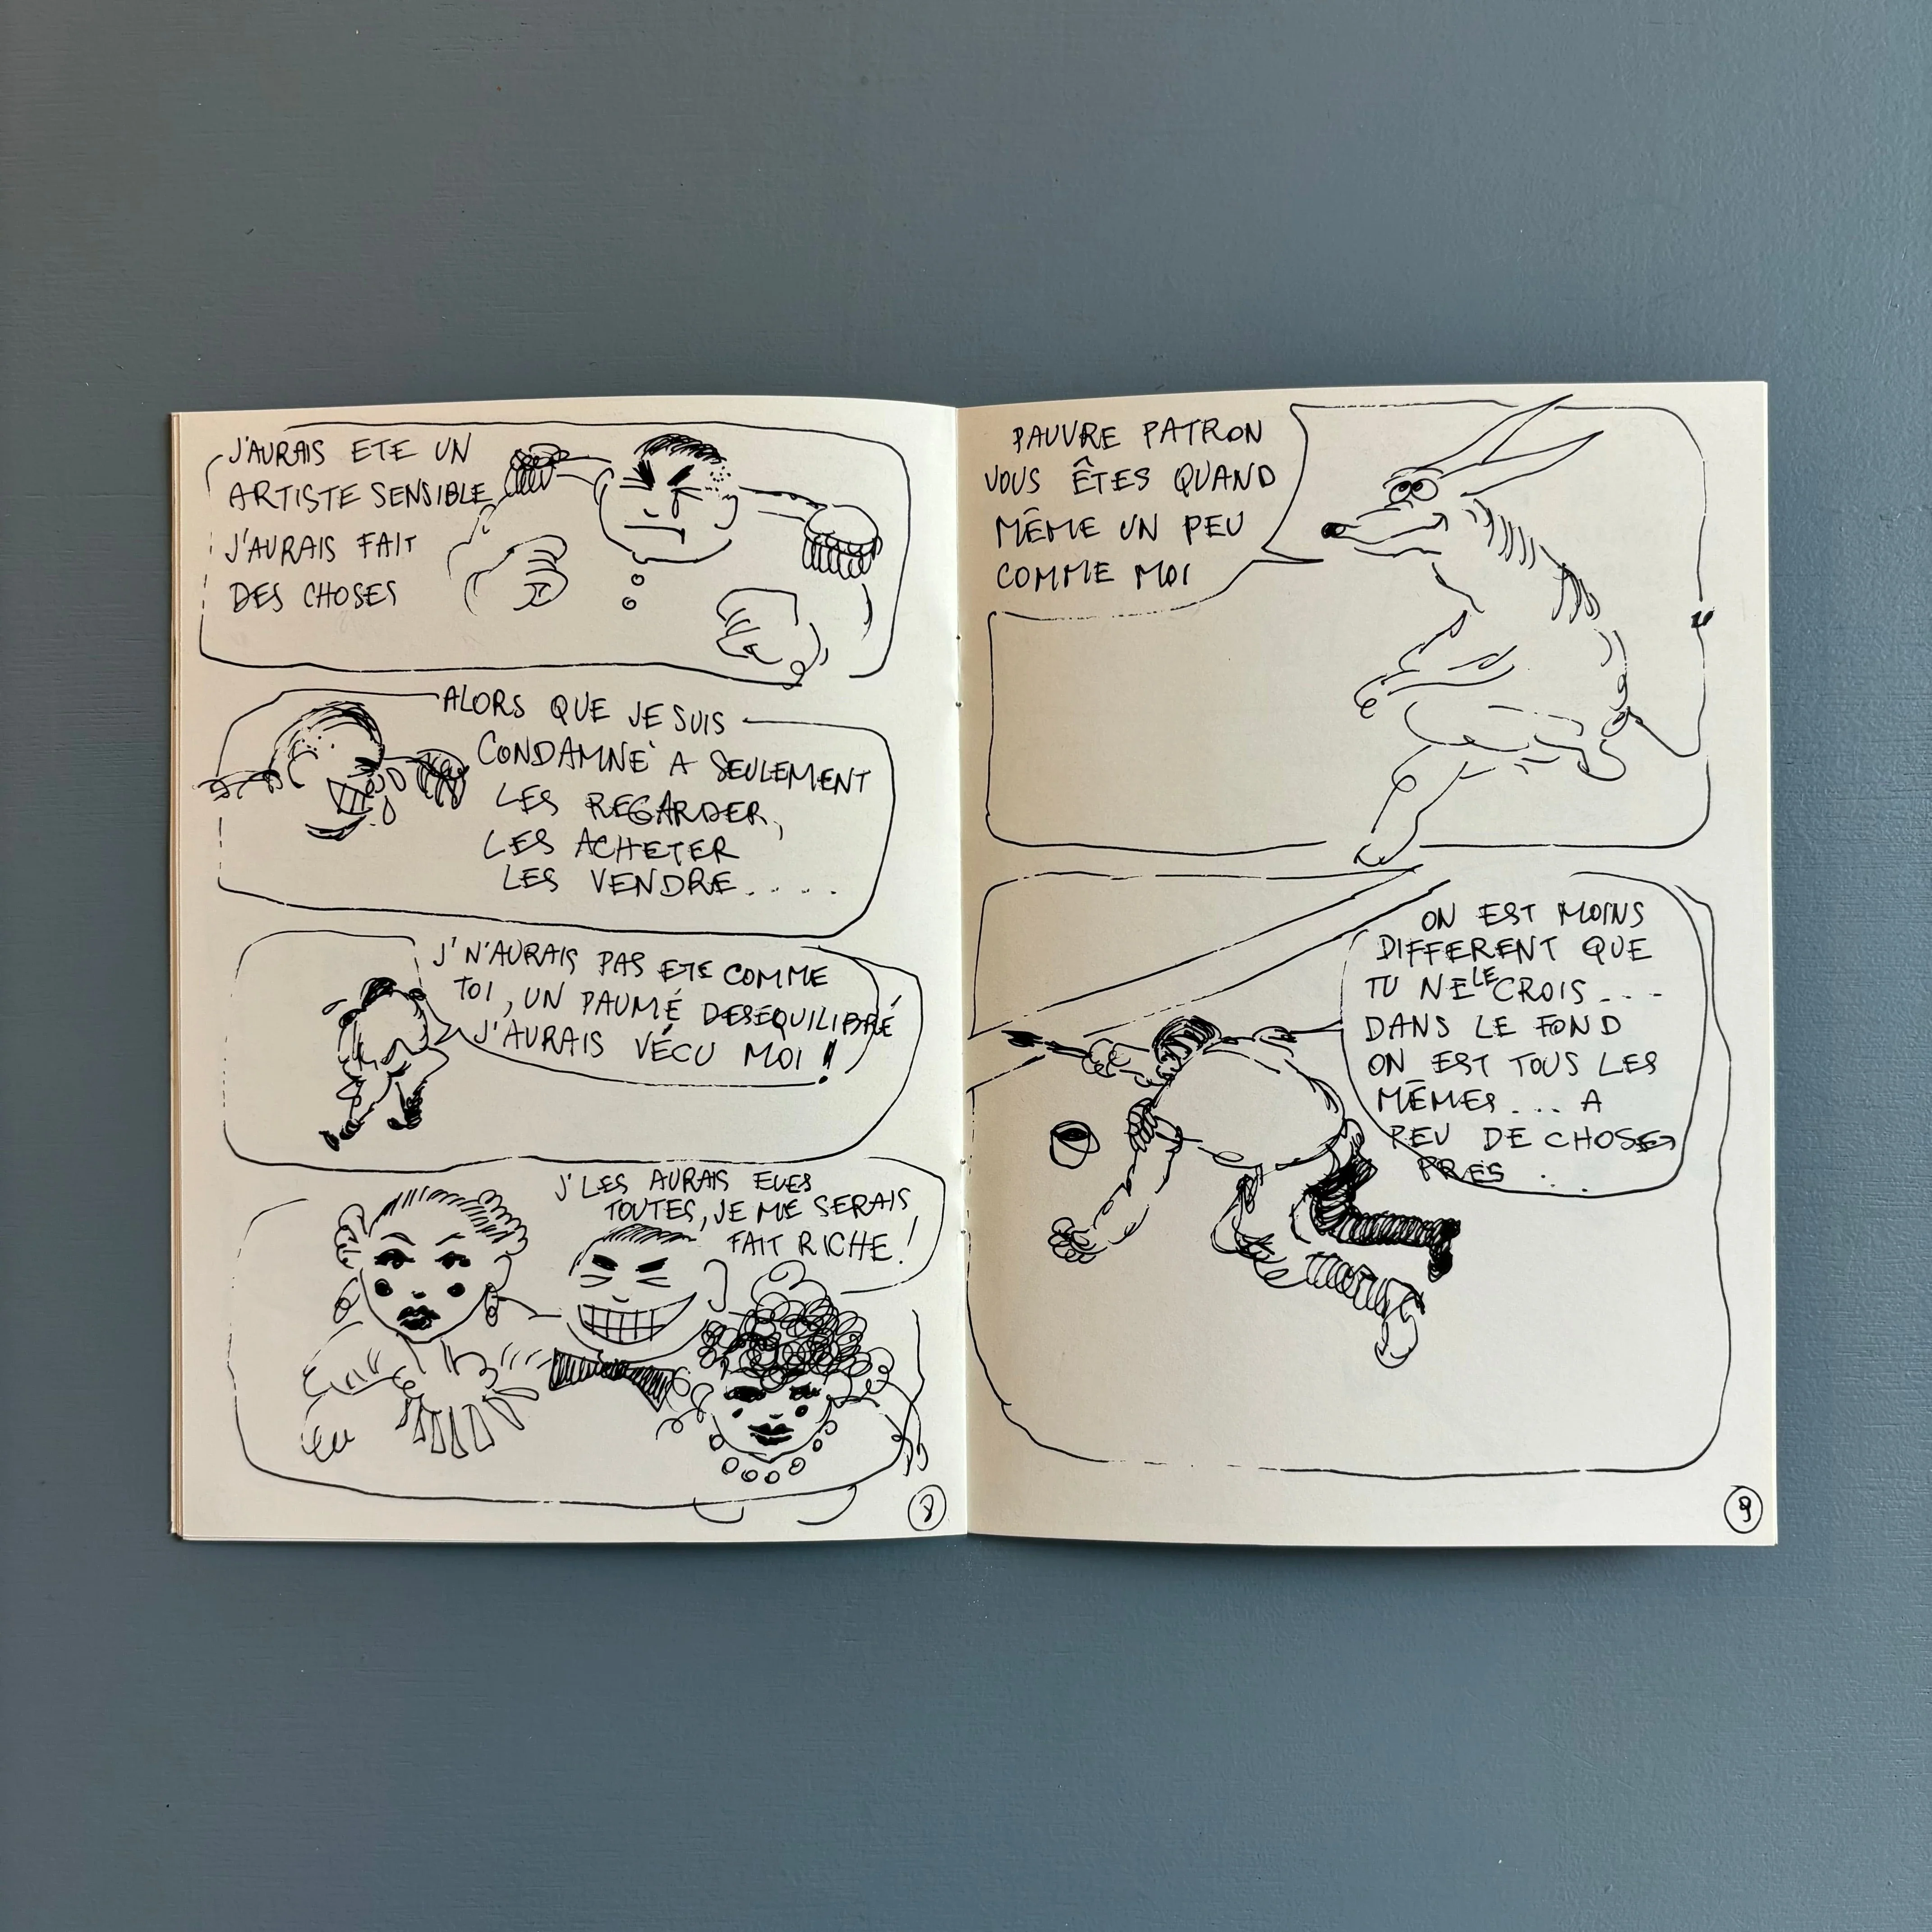 J'AURAIS ETE UN
ARTISTE SENSIBLE
J'AURAIS FAIT
DES CHOSES
ALORS QUE JE SUIS
CONDAMNÉ A SEULEMENT
LES REGARDER,
LES ACHETER
LES VENDRE.....
J'N'AURAIS PAS ETE COMME
TOI, UN PAUMÉ DESEQUILIBRÉ
J'AURAIS VÉCU MOI !
J'LES AURAIS EUES
TOUTES, JE ME SERAIS
FAIT RICHE !
8
PAUVRE PATRON
VOUS ÊTES QUAND
MÊME UN PEU
COMME MOI
ON EST MOINS
DIFFERENT QUE
TU NE LE CROIS....
DANS LE FOND
ON EST TOUS LES
MÊMES.... A
PEU DE CHOSES
PRES...
9